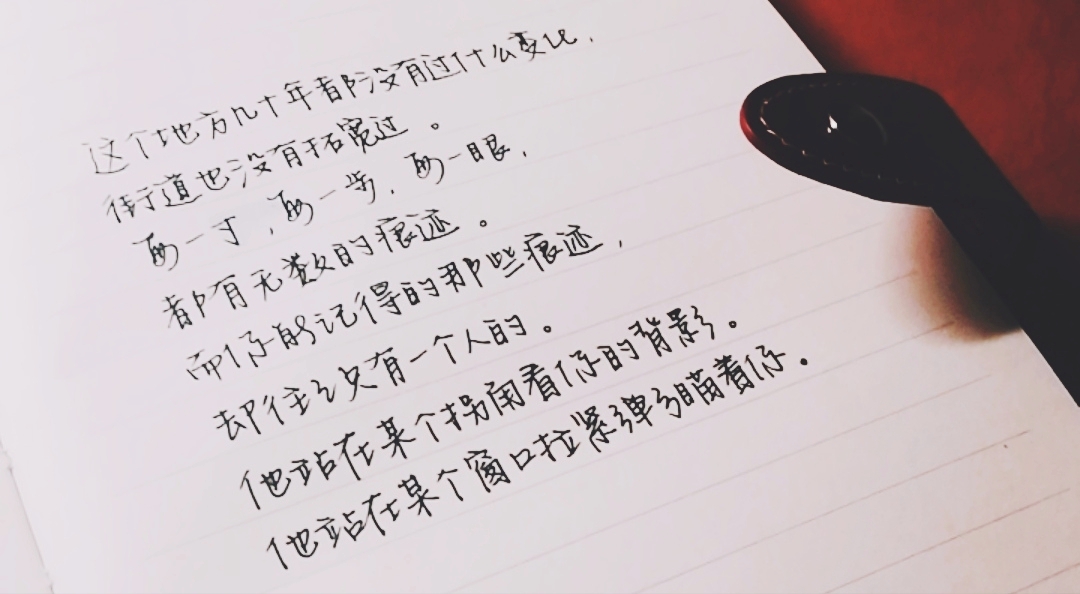 这个地方几十年都没有过什么变化，
街道也没有拓宽过。
每一寸，每一步，每一眼，
都有无数的痕迹。
而你能记得的那些痕迹，
却往往只有一个人的。
他站在某个拐角看你的背影。
他站在某个窗口拉紧弹弓瞄着你。